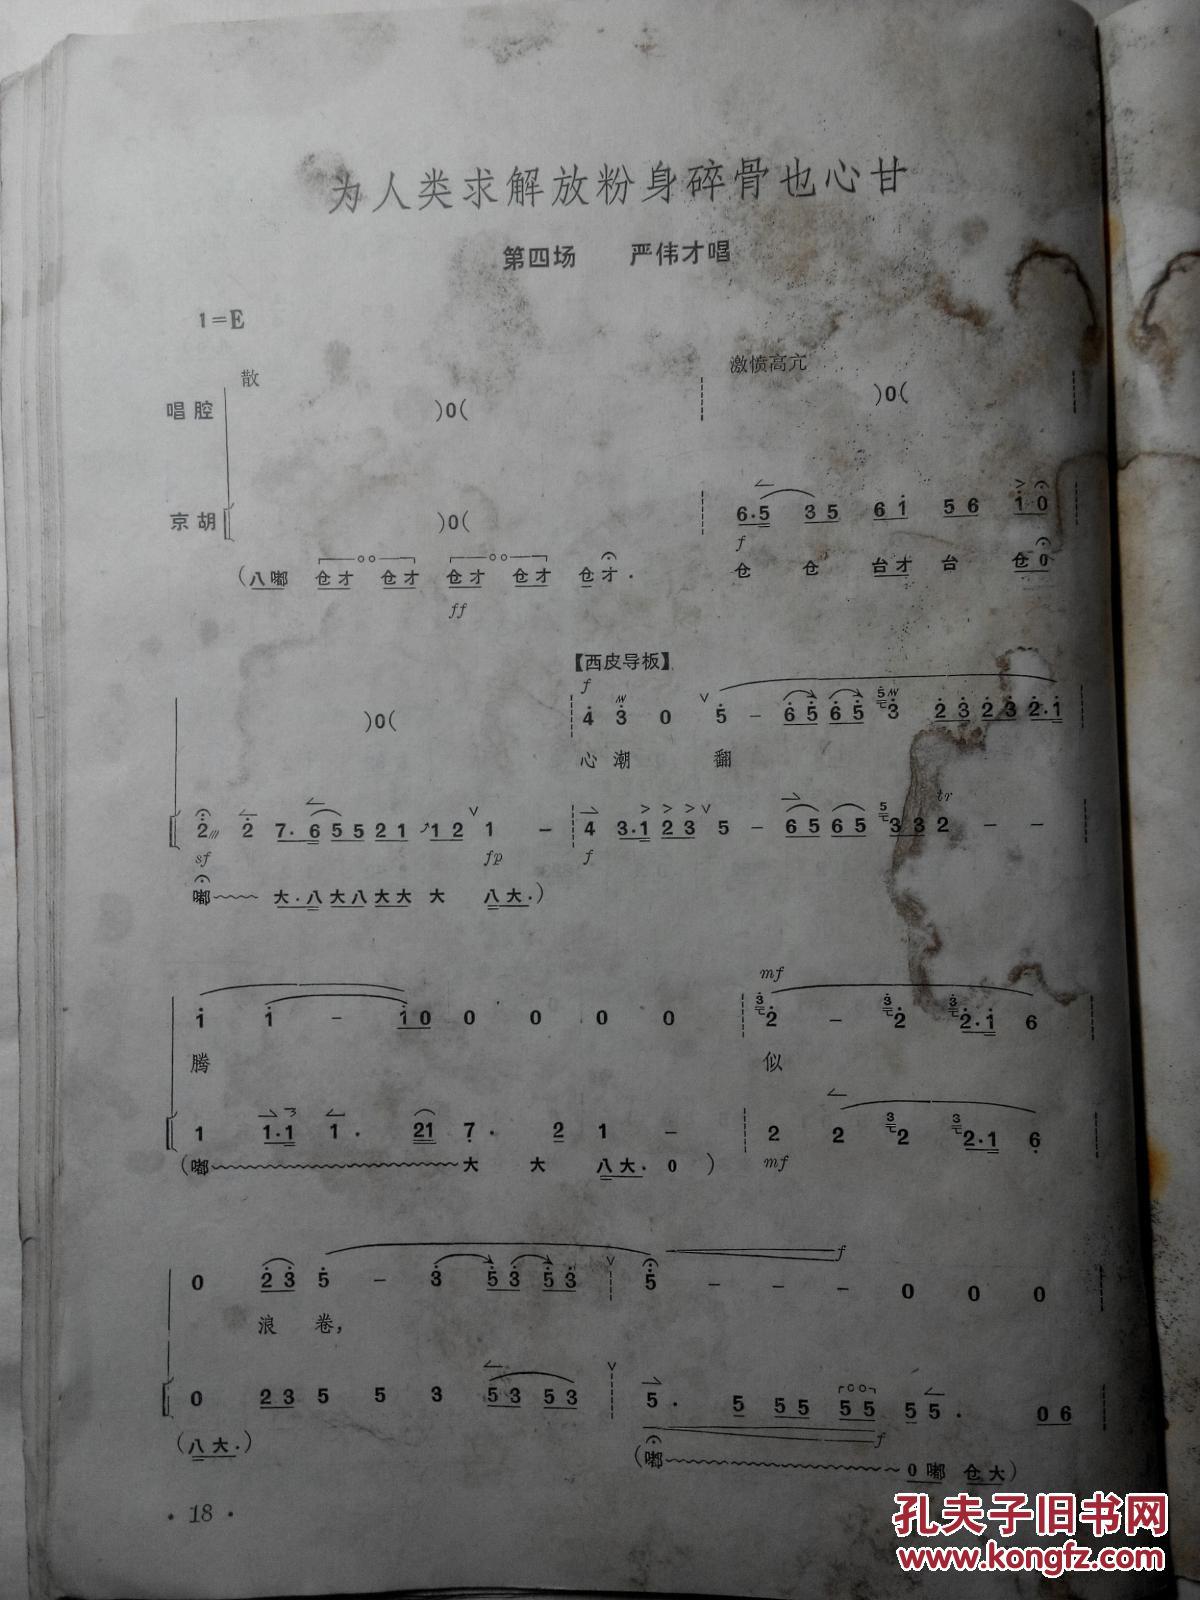 为人类求解放粉身碎骨也心甘
第四场 严伟才唱
1=E
散 激愤高亢
唱腔 )0( )0(
京胡 )0( 6·5 3 5 6 i 5 6 i 0
f
(八嘟 仓才 仓才 仓才 仓才 仓才· 仓 仓 台才 台 仓0
ff
【西皮导板】
f
)0( 4 3 0 5 – 6 5 6 5 3 2 3 2 3 2·1
心 潮 翻
tr
2 2 7·6 5 5 2 1 1 2 1 – 4 3·1 2 3 5 – 6 5 6 5 3 3 2 – –
sf fp f
嘟 大·八 大八 大大 大 八大·)
mf
i i – i 0 0 0 0 0 2 – 2 2·i 6
腾 似
1 1·1 1· 21 7· 2 1 – 2 2 2 2·1 6
mf
(嘟 大 大 八大· 0 )
f
0 2 3 5 – 3 5 3 5 3 5 – – – 0 0 0
浪 卷,
0 2 3 5 5 3 5 3 5 3 5· 5 5 5 5 5 5 5· 0 6
f
(八大·) (嘟 0嘟 仓大)
· 18 ·
孔夫子旧书网
www.kongfz.com